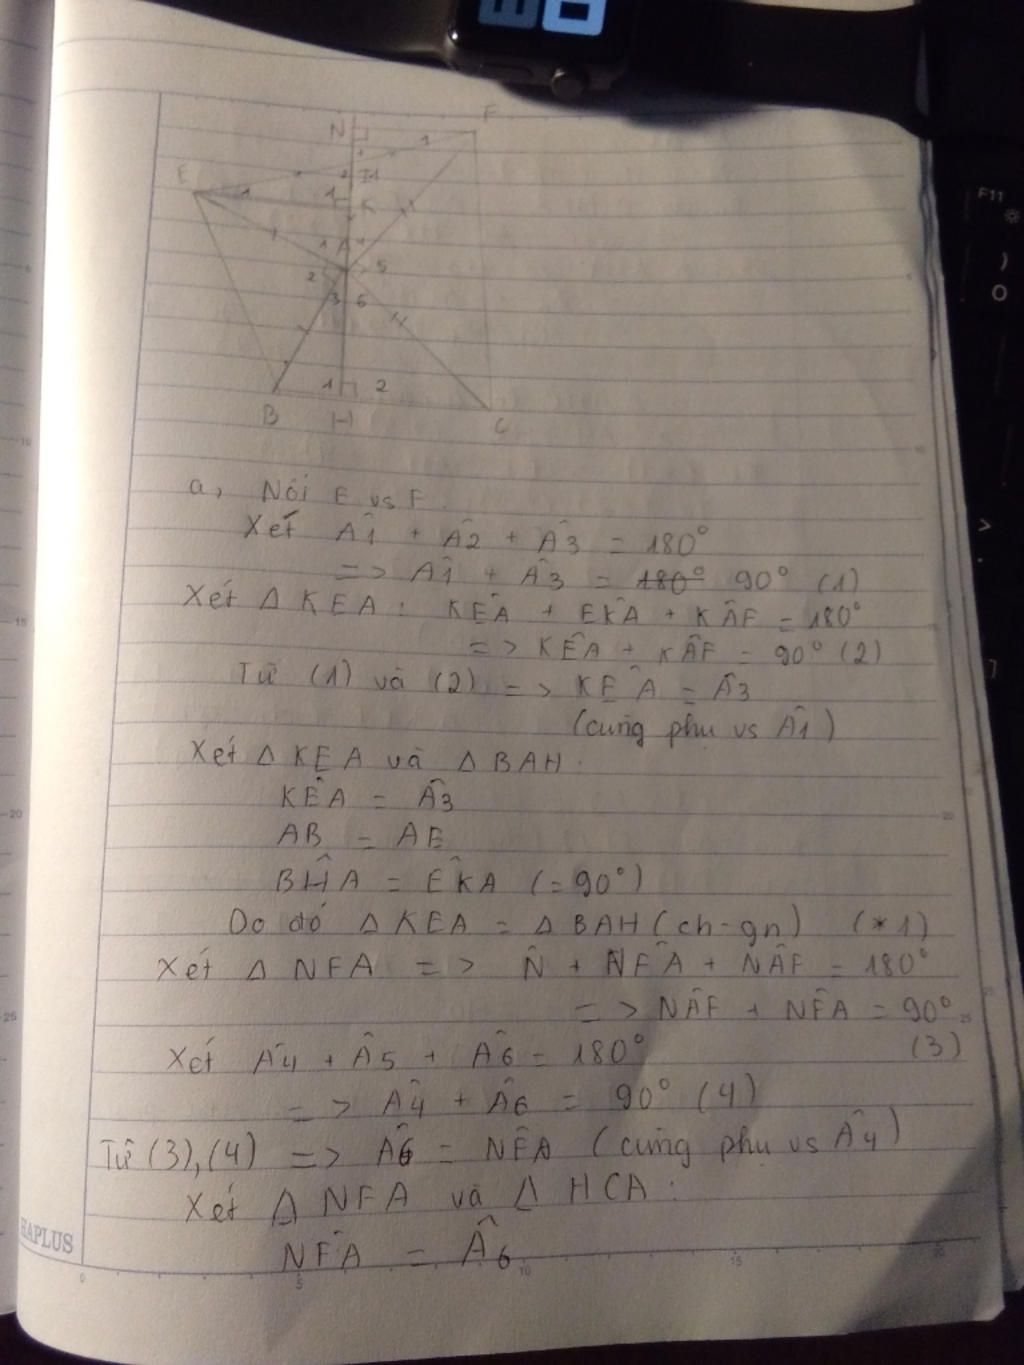 N
F
1
E
1
2
I1
1
K
1
A
4
2
5
3
6
1
2
B
H
C
a, Nối E vs F.
Xét Â1 + Â2 + Â3 = 180°
=> Â1 + Â3 = 180° 90° (1)
Xét Δ KEA: KÊA + EK̂A + KÂF = 180°
=> KÊA + KÂF = 90° (2)
Từ (1) và (2) => KÊA = Â3
(cùng phụ vs Â1)
Xét Δ KEA và Δ BAH.
KÊA = Â3
AB = AE
BĤA = EK̂A (=90°)
Do đó Δ KEA = Δ BAH (ch-gn) (*1)
Xét Δ NFA => N̂ + NF̂A + NÂF = 180°
=> NÂF + NF̂A = 90°
(3)
Xét Â4 + Â5 + Â6 = 180°
=> Â4 + Â6 = 90° (4)
Từ (3), (4) => Â6 = NF̂A (cùng phụ vs Â4)
Xét Δ NFA và Δ HCA:
NF̂A = Â6
HAPLUS
0
5
10
15
20
15
20
25
F11